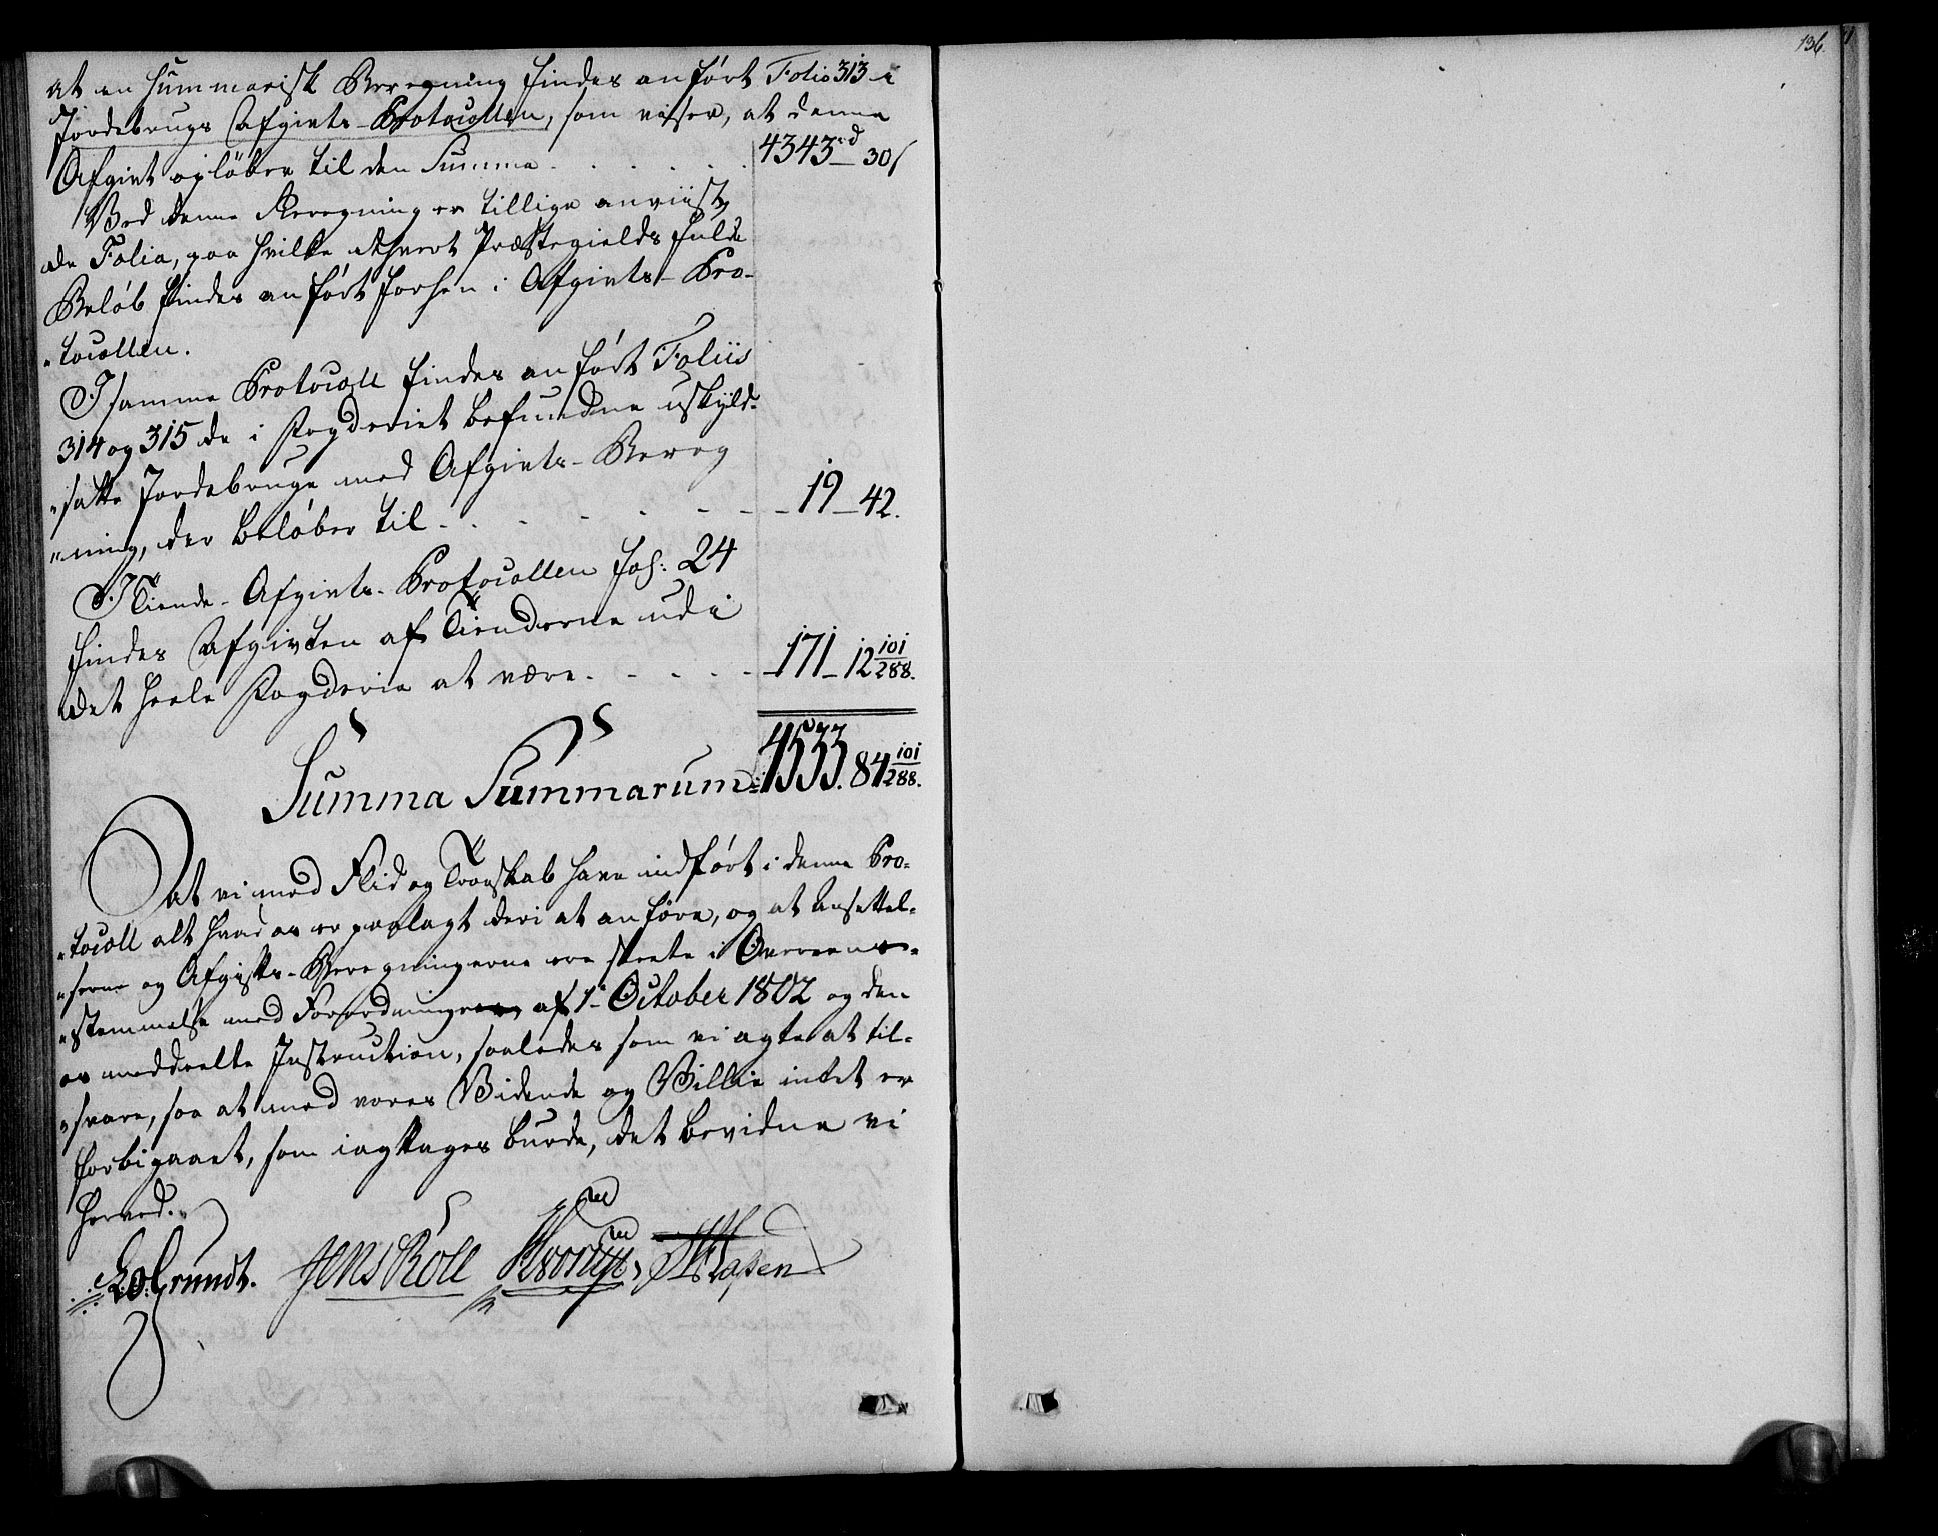 at en Summarisk Beregning findes anført Folio 313 i
Jordebrugs Afgivts-Protocollen, som viser, at denne
Afgivt opløber til den Summa . . . . . 4343rd 30s
Ved denne Beregning er tillige anviist
de Folia, paa hvilke ethvert Præstegields fulde
Beløb findes anført forhen i Afgivts-Pro-
"tocollen.
I samme Protocoll findes anført Foliis
314 og 315 de i Fogderiet befundne uskyld-
"satte Jordebruge med Afgivts-Bereg
"ning, der beløber til . . . . . 19 - 42.
I Tiende-Afgivts-Protocollen Fol: 24
findes Afgivten af Tienderne udi
det heele Fogderie at være . . . . . 171 - 12 101/288.
Summa Summarum: 4533. 84 101/288.
At vi med Flid og Troeskab have indført i denne Pro-
"tocoll alt hvad os er paalagt deri at anføre, og at Ansættel-
"serne og Afgifts-Beregningerne ere skeete i Overeens-
"stemmelse med Forordningen af 1te October 1802 og den
os meddeelte Instruction, saaledes som vi agte at til-
"svare, saa at med vores Vidende og Villie intet er
forbigaaet, som iagttages burde, det bevidne vi
herved.
Grundt. Jens Roll
136.